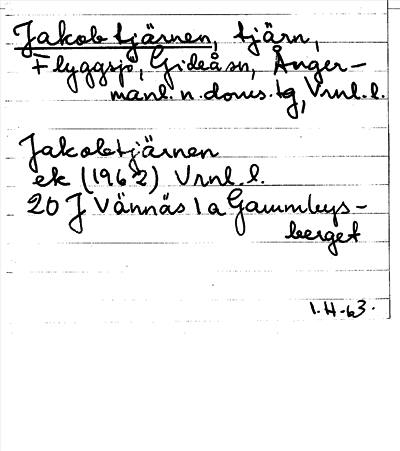 Jakobtjärnen, tjärn,
Flyggsjö, Gideå sn, Ånger-
manl. n. doms. tg, Vrnl. l.
Jakobtjärnen
ek (1962) Vrnl. l.
20 J Vännäs 1 a Gammbys-
berget
1.H-63.